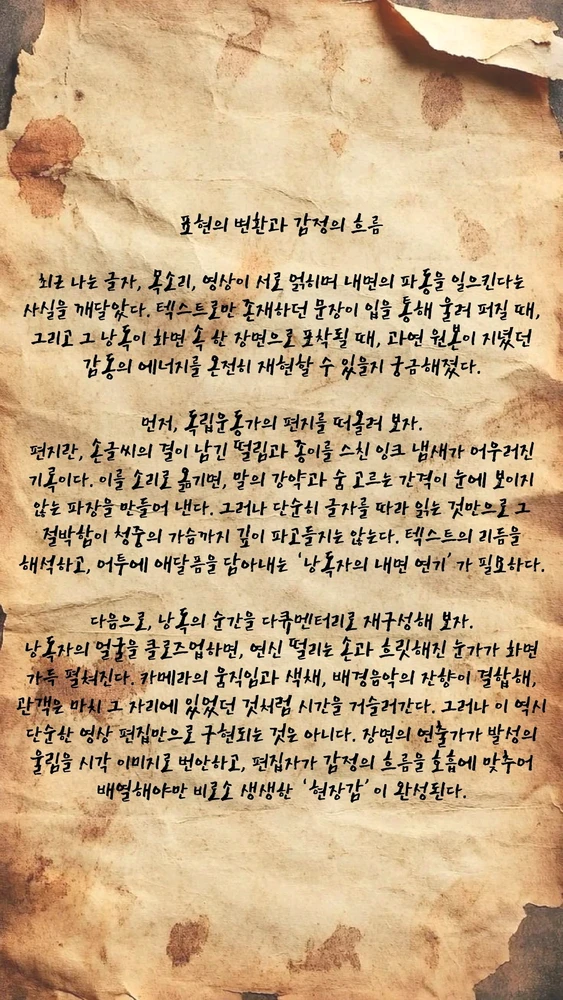 표현의 변환과 감정의 흐름
최근 나는 글자, 목소리, 영상이 서로 얽히며 내면의 파동을 일으킨다는
사실을 깨달았다. 텍스트로만 존재하던 문장이 입을 통해 울려 퍼질 때,
그리고 그 낭독이 화면 속 한 장면으로 포착될 때, 과연 원본이 지녔던
감동의 에너지를 온전히 재현할 수 있을지 궁금해졌다.
먼저, 독립운동가의 편지를 떠올려 보자.
편지란, 손글씨의 결이 남긴 떨림과 종이를 스친 잉크 냄새가 어우러진
기록이다. 이를 소리로 옮기면, 말의 강약과 숨 고르는 간격이 눈에 보이지
않는 파장을 만들어 낸다. 그러나 단순히 글자를 따라 읽는 것만으로 그
절박함이 청중의 가슴까지 깊이 파고들지는 않는다. 텍스트의 리듬을
해석하고, 어투에 애달픔을 담아내는 ‘낭독자의 내면 연기’가 필요하다.
다음으로, 낭독의 순간을 다큐멘터리로 재구성해 보자.
낭독자의 얼굴을 클로즈업하면, 연신 떨리는 손과 흐릿해진 눈가가 화면
가득 펼쳐진다. 카메라의 움직임과 색채, 배경음악의 잔향이 결합해,
관객은 마치 그 자리에 있었던 것처럼 시간을 거슬러간다. 그러나 이 역시
단순한 영상 편집만으로 구현되는 것은 아니다. 장면의 연출가가 발성의
울림을 시각 이미지로 번안하고, 편집자가 감정의 흐름을 호흡에 맞추어
배열해야만 비로소 생생한 ‘현장감’이 완성된다.